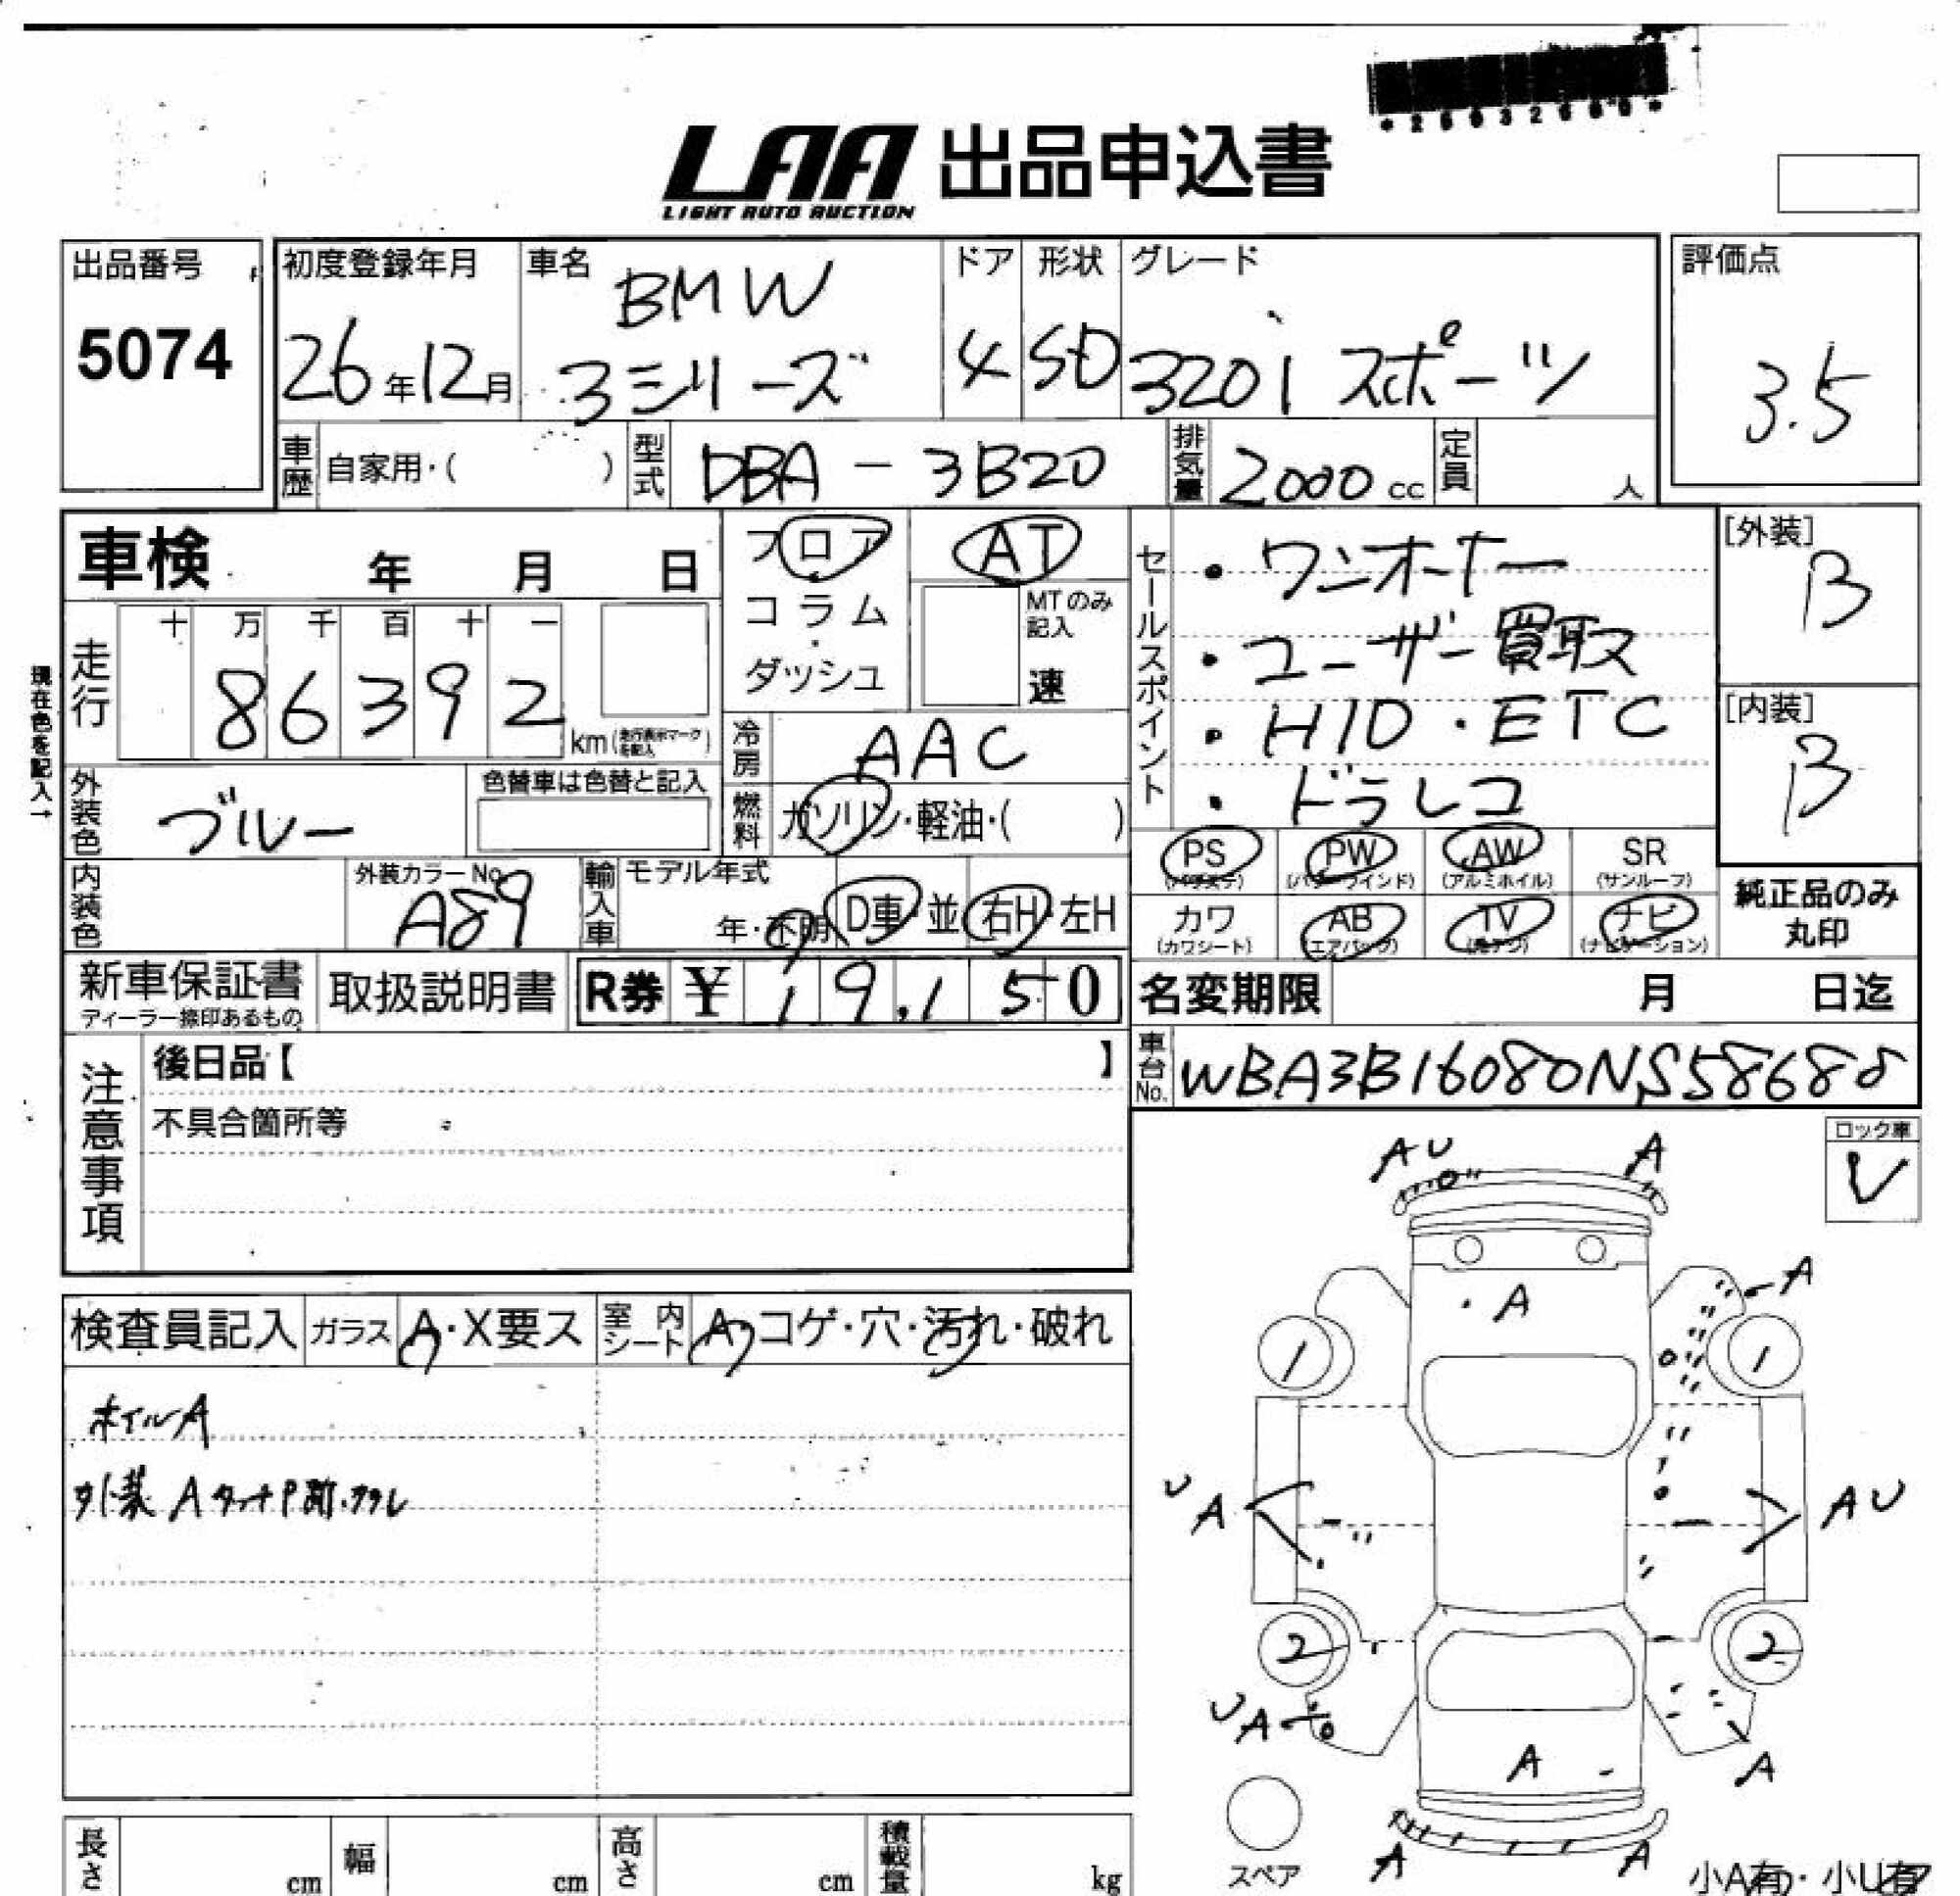 LAA 出品申込書
LIGHT AUTO AUCTION
出品番号
5074
初度登録年月
26年12月
車名
BMW
3シリーズ
ドア
4
形状
SD
グレード
320i スポーツ
評価点
3.5
車歴 自家用・( )
型式 DBA-3B20
排気量 2000cc
定員 人
車検 年 月 日
フロア
コラム
ダッシュ
AT
MTのみ記入
速
セールスポイント
・ワンオーナー
・ユーザー買取
・HID・ETC
・ドラレコ
[外装]
B
[内装]
B
現在色を記入→
走行
十 万 千 百 十 一
8 6 3 9 2
km(走行表示マークを記入)
冷房 AAC
燃料 ガソリン・軽油・( )
外装色 ブルー
色替車は色替と記入
内装色
外装カラーNo.
A89
輸入車
モデル年式
年・不明
D車・並
右H・左H
PS (パワステ)
PW (パワーウインド)
AW (アルミホイル)
SR (サンルーフ)
カワ (カワシート)
AB (エアバッグ)
TV
ナビ (ナビゲーション)
純正品のみ丸印
新車保証書
ディーラー捺印あるもの
取扱説明書
R券 ¥ 19,150
名変期限 月 日迄
車台No. WBA3B16080NS58688
注意事項
後日品【 】
不具合箇所等
ロック車
レ
検査員記入
ガラス A・X要ス
室内シート A・コゲ・穴・汚れ・破れ
ホイルA
AU
A
A
A
1
1
UA
AU
2
2
UA
A
A
A
A
スペア
小A有・小U有
長さ cm
幅 cm
高さ cm
積載量 kg